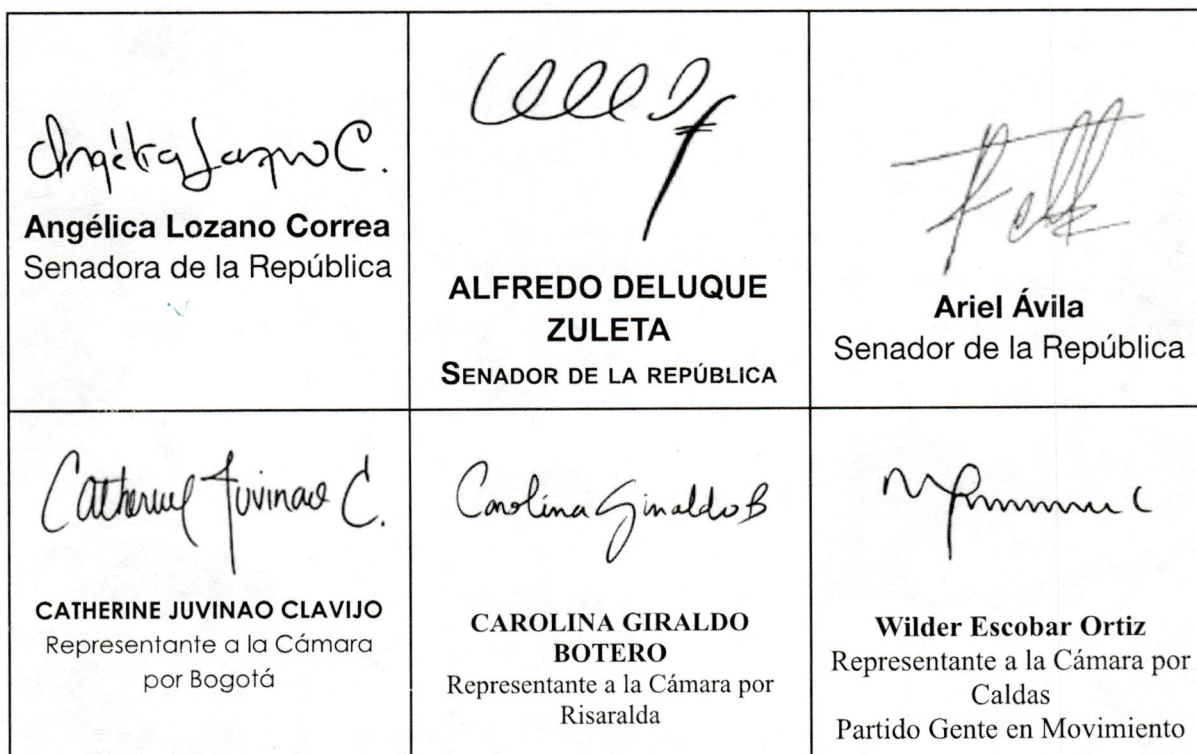 Angélica Lozano C.
Angélica Lozano Correa
Senadora de la República
ALFREDO DELUQUE
ZULETA
SENADOR DE LA REPÚBLICA
Ariel Ávila
Senador de la República
Catherine Juvinao C.
CATHERINE JUVINAO CLAVIJO
Representante a la Cámara
por Bogotá
Carolina Giraldo B
CAROLINA GIRALDO
BOTERO
Representante a la Cámara por
Risaralda
Wilder Escobar Ortiz
Representante a la Cámara por
Caldas
Partido Gente en Movimiento